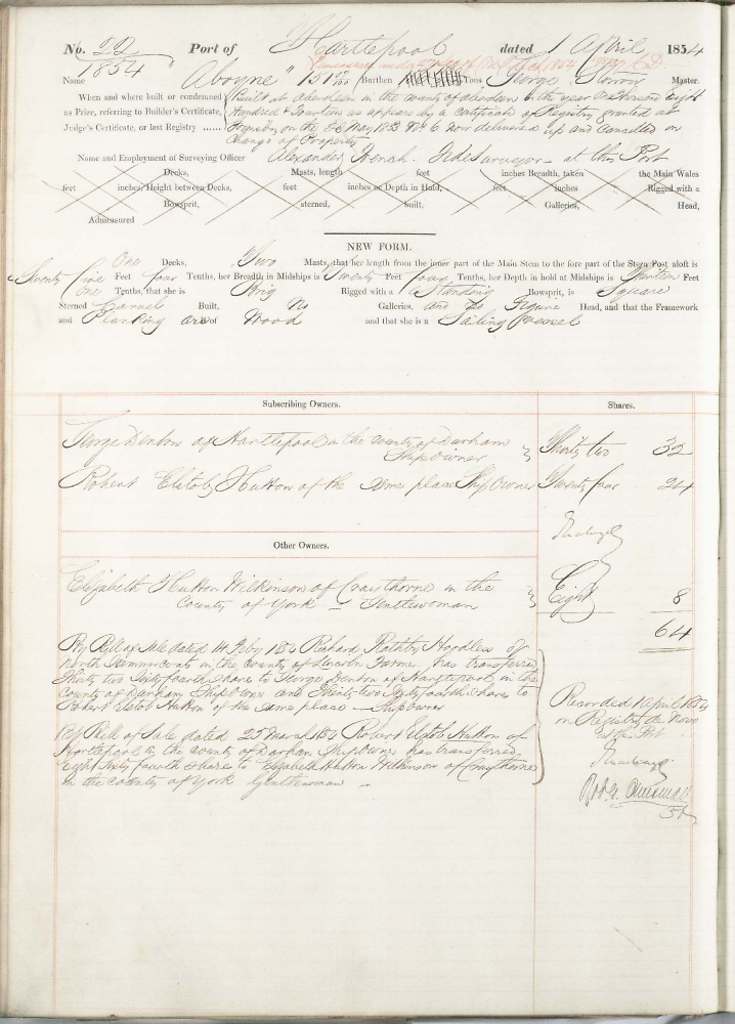 No. 22 Port of Hartlepool dated 1 April 1854
1854
Name "Aboyne" Burthen Tons George Master.
When and where built or condemned
as Prize, referring to Builder's Certificate,
Judge's Certificate, or last Registry ......
Built at Aberdeen in the County of Aberdeen in the year One thousand eight
Hundred & fourteen as appears by a Certificate of Registry granted at
on the 26 May 1853 No 6 now delivered up and Cancelled on
Change of Property
Name and Employment of Surveying Officer Alexander French. Tide Surveyor at this Port
Decks, Masts, length feet inches Breadth, taken the Main Wales
feet inches, Height between Decks, feet inches or Depth in Hold, feet inches Rigged with a
Bowsprit, sterned, built, Galleries, Head,
Admeasured
NEW FORM.
One Decks, Two Masts, that her length from the inner part of the Main Stem to the fore part of the Stern Post aloft is
Seventy five Feet four Tenths, her Breadth in Midships is Twenty Feet four Tenths, her Depth in hold at Midships is Feet
one Tenths, that she is Brig Rigged with a Standing Bowsprit, is Square
Sterned Carvel Built, No Galleries, and No Figure Head, and that the Framework
and Planking are of Wood and that she is a Sailing Vessel
Subscribing Owners. Shares.
George Denton of Hartlepool in the County of Durham
Ship Owner
Thirty two 32
Robert Elstob Hutton of the same place Ship Owner Twenty four 24
Other Owners.
Elizabeth Hutton Wilkinson of Craythorne in the
County of York - Gentlewoman
Eight 8
64
By Bill of Sale dated 14 Feby Richard Hoodless of
North Somercoats in the County of Lincoln Farmer has transferred
Thirty two Sixty fourth shares to George Denton of Hartlepool in the
County of Durham Shipowner and Thirty two Sixty fourth shares to
Robert Elstob Hutton of the same place - Shipowner
By Bill of Sale dated 25 March Robert Elstob Hutton of
Hartlepool in the County of Durham Shipowner has transferred
Eight Sixty fourth shares to Elizabeth Hutton Wilkinson of Craythorne
in the County of York Gentlewoman
Recorded 1 April 1854
on Registry de Novo
at this Port